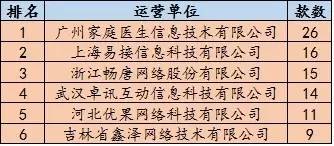 排名 运营单位 款数
1 广州家庭医生信息技术有限公司 26
2 上海易接信息科技有限公司 16
3 浙江畅唐网络股份有限公司 15
4 武汉卓讯互动信息科技有限公司 14
5 河北优果网络科技有限公司 11
6 吉林省鑫泽网络技术有限公司 9